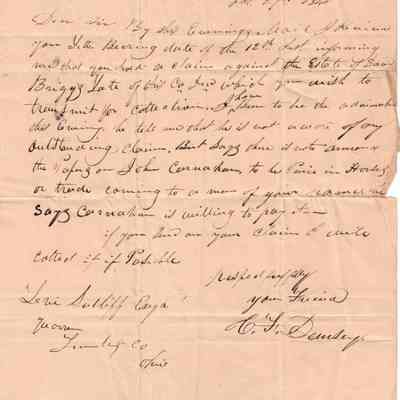 Dear Sir By this Evenings Mail I Received
your Letter Bearing date of the 12th Inst informing
me that you had a claim against the Estate of
Briggs Late of this Co and which you wish to
transmit for collection. I have been to see the
this Evening he tells me that he is not aware of any
outstanding claim, But says there is note amongs
the Papers on John Carnahan to be Paid in Horses
or trade coming to a man of your name and
says Carnahan is willing to pay it
if you send on your claim I will
collect it if Possible
respectfully
your Friend
Levi Sutliff Esqr
Warren
Trumbull Co
Ohio